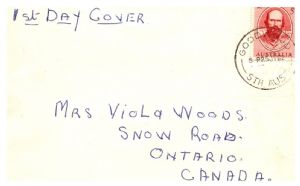 1st DAY COVER
AUSTRALIA
STH AUST
MRS VIOLA WOODS.
SNOW ROAD.
ONTARIO.
CANADA.